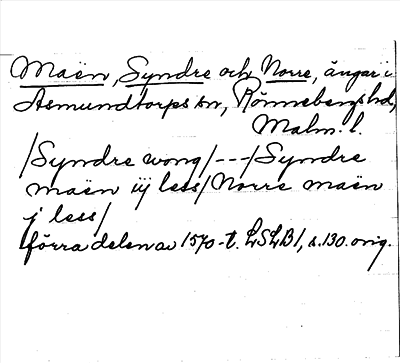 Maën, Syndre och Norre, ängar i
Asmundtorps sn, Rönnebergs hd,
Malm. l.
/Syndre wong/---/Syndre
maën iij less/Norre maën
j less/
förra delen av 1570-t. LSLB1, s. 130. orig.